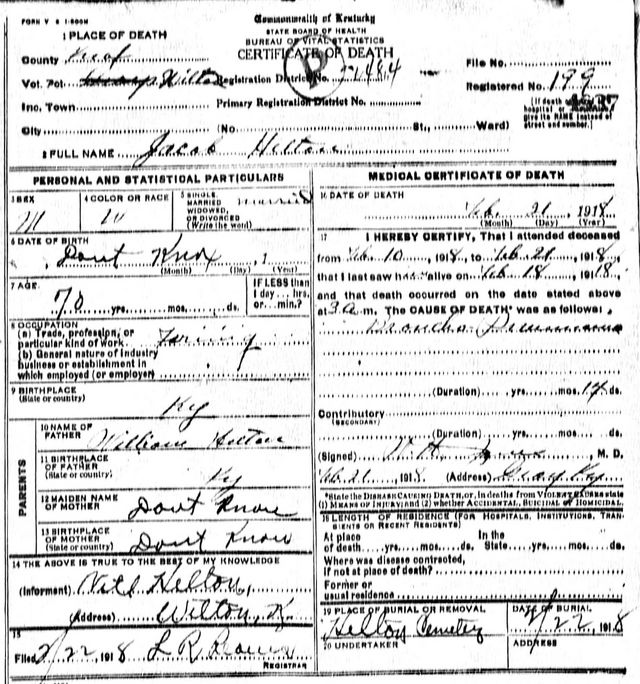 FORM V S 1-500M
Commonwealth of Kentucky
STATE BOARD OF HEALTH
BUREAU OF VITAL STATISTICS
CERTIFICATE OF DEATH
1 PLACE OF DEATH
County Knox
Vot. Pct. Wilton Registration District No.
File No.
Registered No. 199
Inc. Town Primary Registration District No.
[If death occurred in hospital or institution, give its NAME instead of street and number.]
City (No St., Ward)
2 FULL NAME Jacob Helton
PERSONAL AND STATISTICAL PARTICULARS
3 SEX M
4 COLOR OR RACE W
5 SINGLE, MARRIED WIDOWED, OR DIVORCED (Write the word) married
6 DATE OF BIRTH Dont Know , 1
(Month) (Day) (Year)
7 AGE 70 yrs. mos. ds.
IF LESS than 1 day.... hrs. or.... min.?
8 OCCUPATION
(a) Trade, profession, or particular kind of work
(b) General nature of industry business or establishment in which employed (or employer)
9 BIRTHPLACE (State or country) Ky
PARENTS
10 NAME OF FATHER William Helton
11 BIRTHPLACE OF FATHER (State or country) Ky
12 MAIDEN NAME OF MOTHER Dont Know
13 BIRTHPLACE OF MOTHER (State or country) Dont Know
14 THE ABOVE IS TRUE TO THE BEST OF MY KNOWLEDGE
(Informant) Helton,
(Address) Wilton, K.
15
Filed 2/22, 1918 L R
REGISTRAR
MEDICAL CERTIFICATE OF DEATH
16 DATE OF DEATH
Feb. 21, 1918
(Month) (Day) (Year)
17 I HEREBY CERTIFY, That I attended deceased
from Feb. 10, 1918, to Feb. 21, 1918,
that I last saw h alive on Feb. 18, 1918,
and that death occurred on the date stated above
at 3 a m. The CAUSE OF DEATH* was as follows:
Broncho Pneumonia
(Duration) yrs. mos. ds.
Contributory (SECONDARY)
(Duration) yrs. mos. ds.
(Signed) M. D.
Feb. 21, 1918 (Address) Gray Ky
*State the DISEASE CAUSING DEATH, or, in deaths from VIOLENT CAUSES state (1) MEANS OF INJURY; and (2) whether ACCIDENTAL, SUICIDAL or HOMICIDAL.
18 LENGTH OF RESIDENCE (FOR HOSPITALS, INSTITUTIONS, TRANSIENTS OR RECENT RESIDENTS)
At place of death yrs. mos. ds. In the State yrs. mos. ds.
Where was disease contracted, if not at place of death?
Former or usual residence
19 PLACE OF BURIAL OR REMOVAL Helton Cemetery
DATE OF BURIAL 2/22, 1918
20 UNDERTAKER
ADDRESS